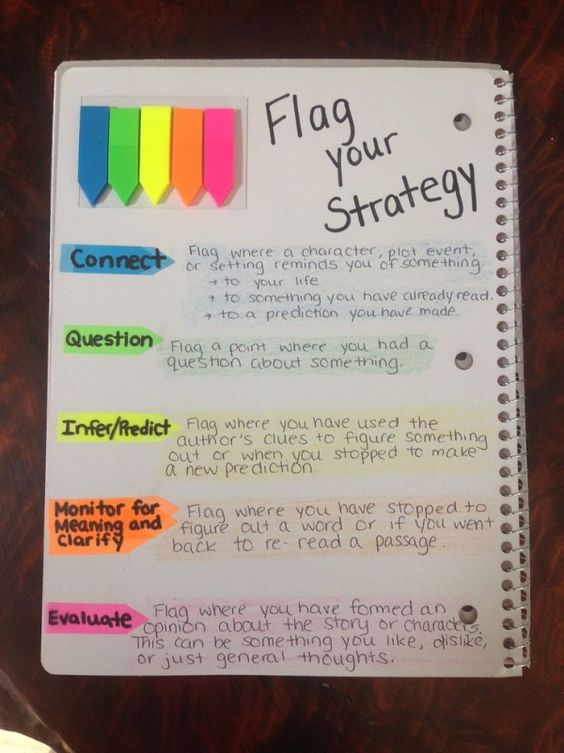 Flag
your
Strategy
Connect
Flag where a character, plot event,
or setting reminds you of something
→ to your life
→ to something you have already read.
→ to a prediction you have made.
Question
Flag a point where you had a
question about something.
Infer/Predict
Flag where you have used the
author's clues to figure something
out or when you stopped to make
a new prediction.
Monitor for
Meaning and
Clarify
Flag where you have stopped to
figure out a word or if you went
back to re-read a passage.
Evaluate
Flag where you have formed an
opinion about the story or characters.
This can be something you like, dislike,
or just general thoughts.